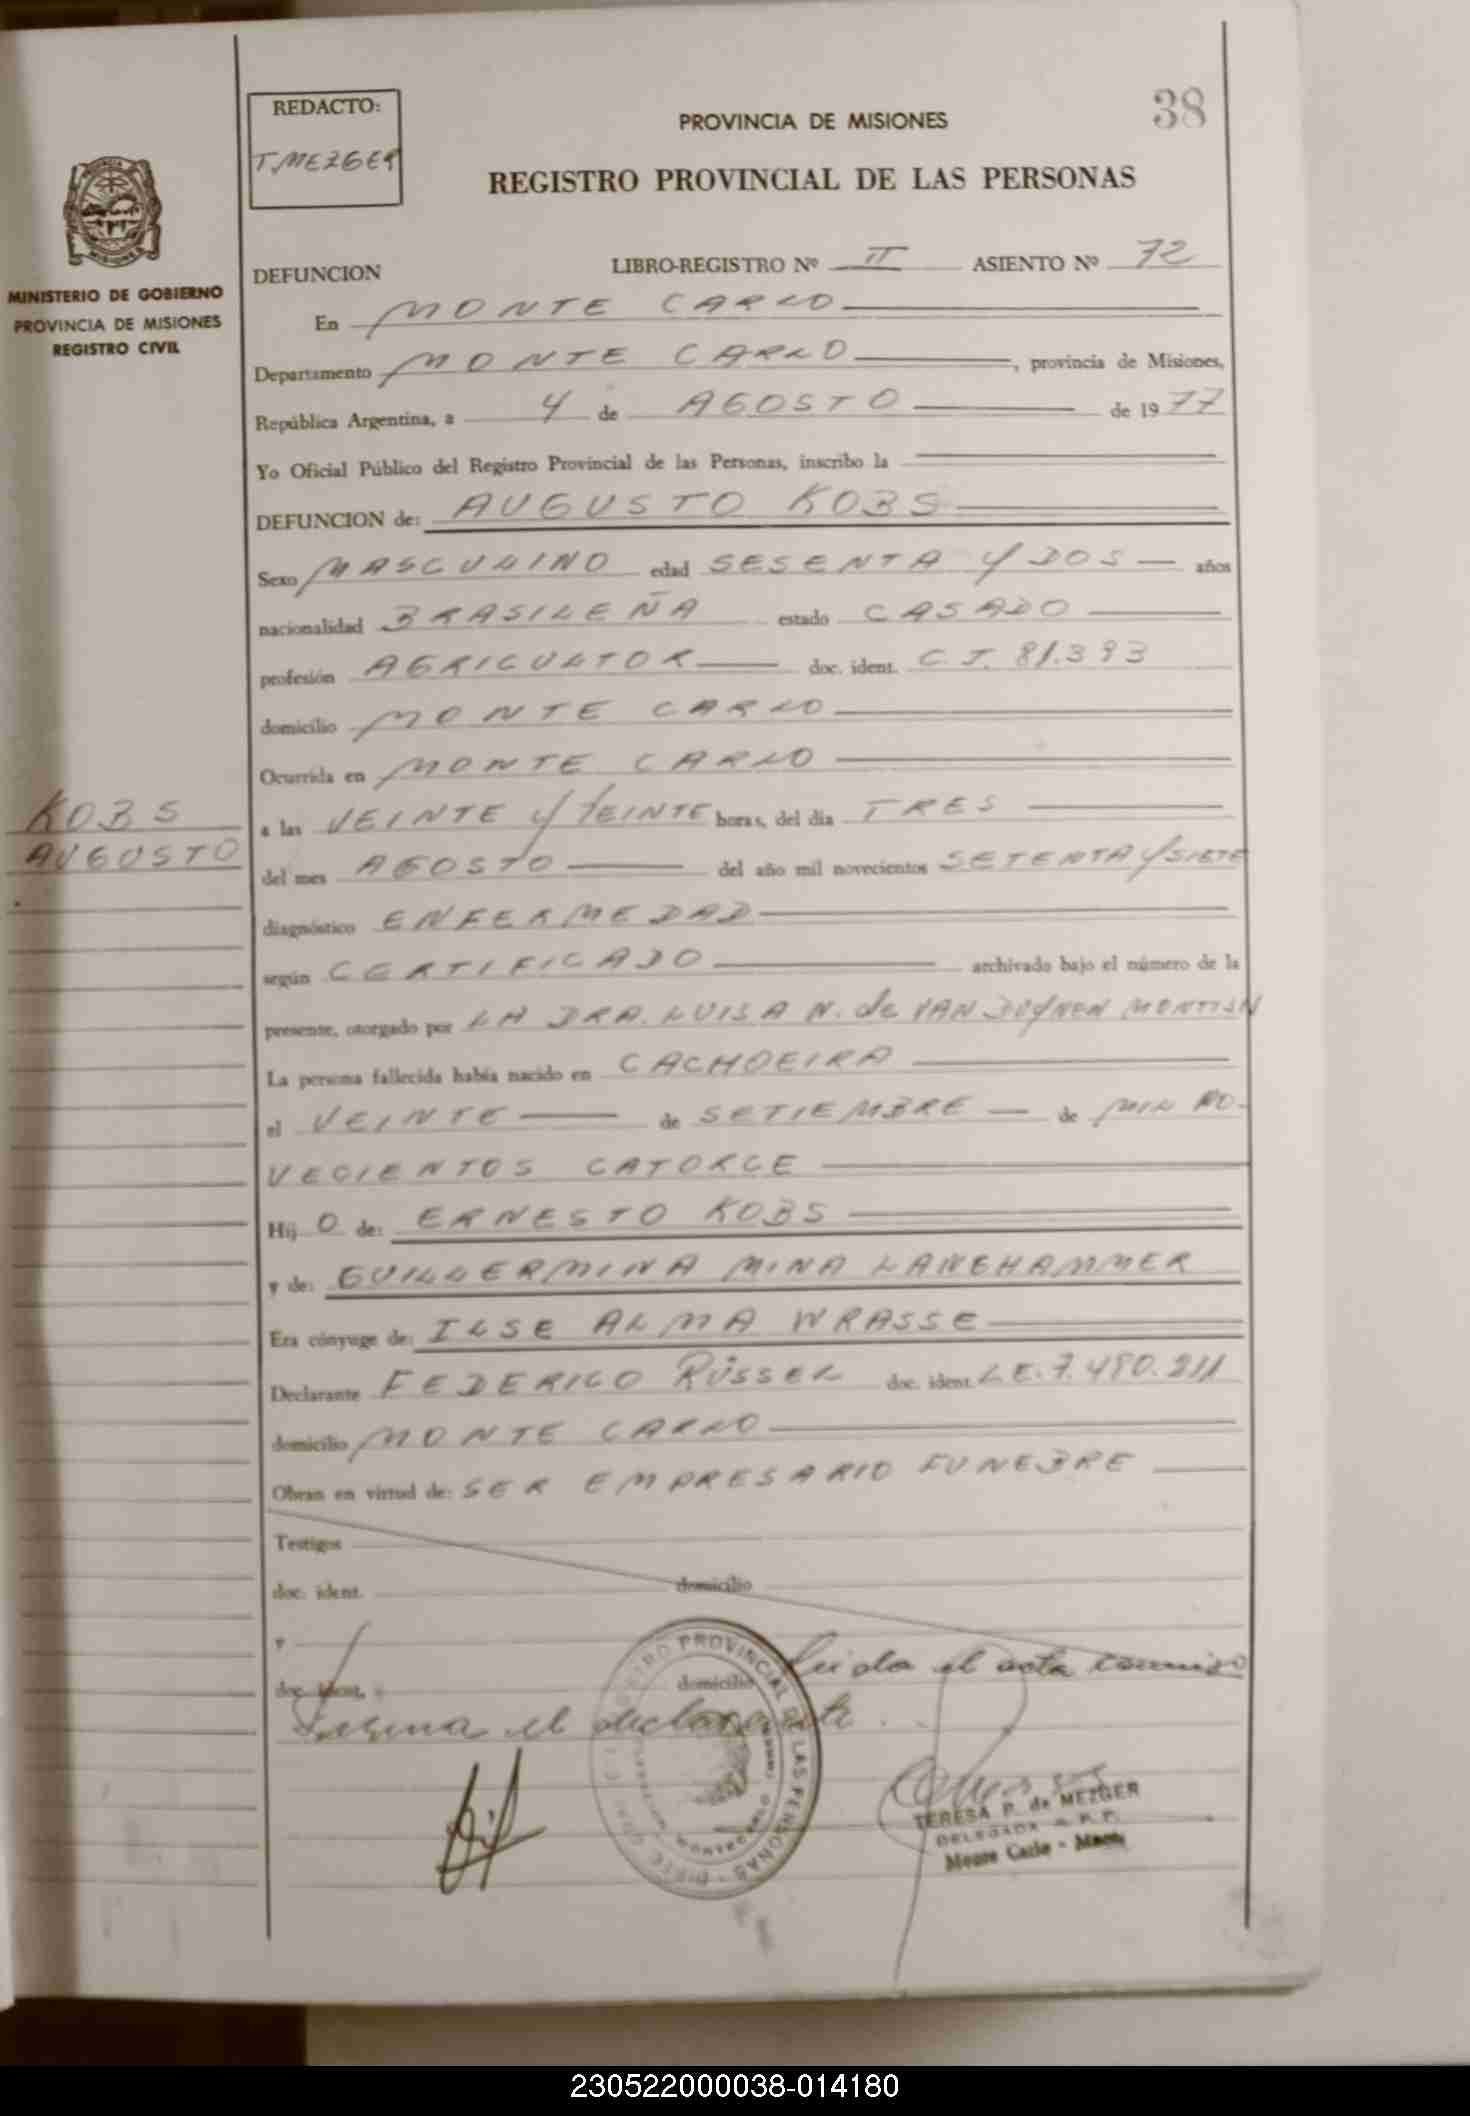 38
REDACTO:
T. MEZGER
PROVINCIA DE MISIONES
REGISTRO PROVINCIAL DE LAS PERSONAS
MINISTERIO DE GOBIERNO
PROVINCIA DE MISIONES
REGISTRO CIVIL
DEFUNCION LIBRO-REGISTRO Nº II ASIENTO Nº 72
En MONTE CARLO
Departamento MONTE CARLO, provincia de Misiones,
República Argentina, a 4 de AGOSTO de 1977
Yo Oficial Público del Registro Provincial de las Personas, inscribo la
DEFUNCION de: AUGUSTO KOBS
Sexo MASCULINO edad SESENTA Y DOS años
nacionalidad BRASILEÑA estado CASADO
profesión AGRICULTOR doc. ident. C.I. 81.393
domicilio MONTE CARLO
Ocurrida en MONTE CARLO
KOBS
AUGUSTO
a las VEINTE y VEINTE horas, del día TRES
del mes AGOSTO del año mil novecientos SETENTA y SIETE
diagnóstico ENFERMEDAD
según CERTIFICADO archivado bajo el número de la
presente, otorgado por LA DRA. LUISA N. de VAN
La persona fallecida había nacido en CACHOEIRA
el VEINTE de SETIEMBRE de MIL NO-
VECIENTOS CATORCE
Hij O de: ERNESTO KOBS
y de: GUILLERMINA MINA LANGHAMMER
Era cónyuge de: ILSE ALMA WRASSE
Declarante FEDERICO RÜSSEL doc. ident. L.E. 7.480.211
domicilio MONTE CARLO
Obran en virtud de: SER EMPRESARIO FUNEBRE
Testigos
doc. ident. domicilio
y
doc. ident. domicilio Leida el acta conmigo
firma el declarante.
REGISTRO PROVINCIAL DE LAS PERSONAS
TERESA P. de MEZGER
DELEGADA R. P. P.
Monte Carlo - Mnes.
230522000038-014180